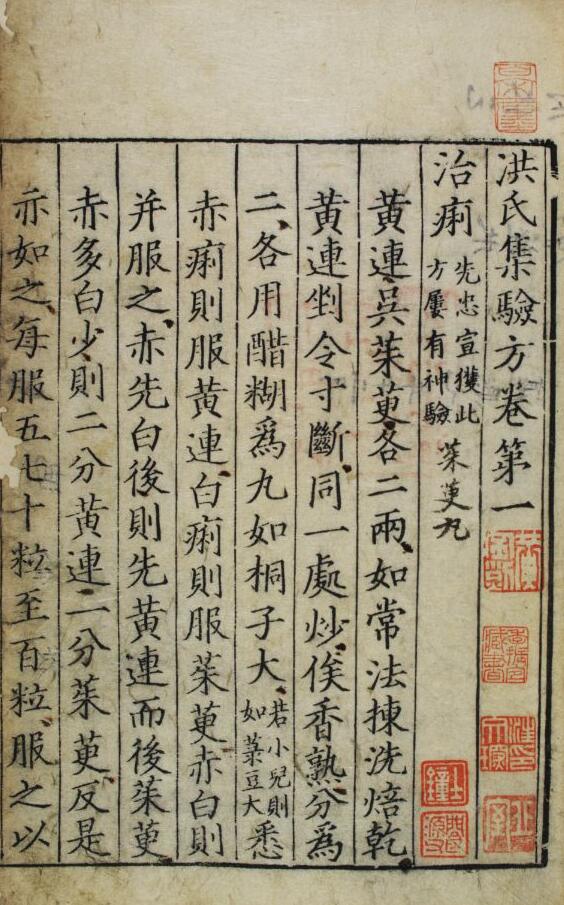 洪氏集驗方卷第一
治痢先忠宣獲此方屢有神驗茱萸丸
黄連吳茱萸各二兩如常法揀洗焙乾
黄連剉令寸斷同一處炒俟香熟分爲
二各用醋糊爲丸如桐子大若小兒則如菉豆大悉
赤痢則服黄連白痢則服茱萸赤白則
并服之赤先白後則先黄連而後茱萸
赤多白少則二分黄連一分茱萸反是
亦如之每服五七十粒至百粒服之以